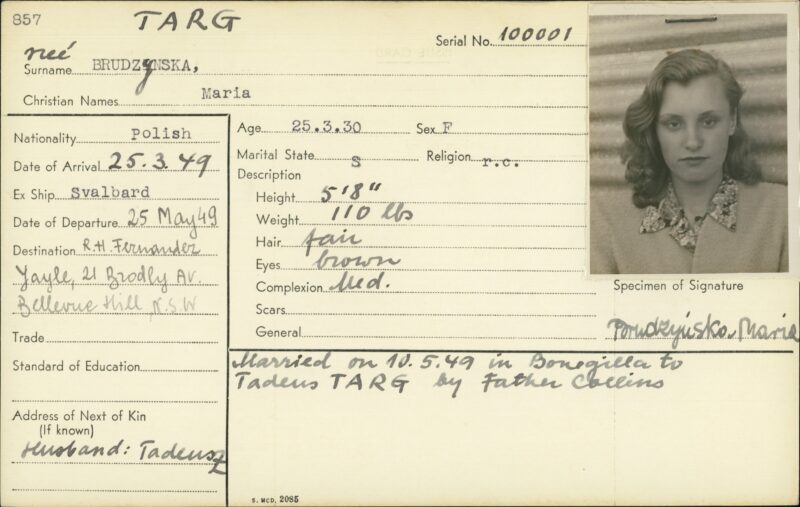 857
TARG
Serial No. 100001
neé
Surname BRUDZYNSKA,
Christian Names Maria
Nationality Polish
Date of Arrival 25.3.49
Ex Ship Svalbard
Date of Departure 25 May 49
Destination R.H. Fernandez
21 Bradly Av.
Bellevue Hill, N.S.W
Trade
Standard of Education
Address of Next of Kin
(If known)
Husband: Tadeusz
Age 25.3.30 Sex F
Marital State S Religion r.c.
Description
Height 5'8"
Weight 110 lbs
Hair fair
Eyes brown
Complexion Med.
Scars
General
Specimen of Signature
Brudzyńska Maria
Married on 10.5.49 in Bonegilla to
Tadeus TARG by Father Collins
S. MCD. 2085